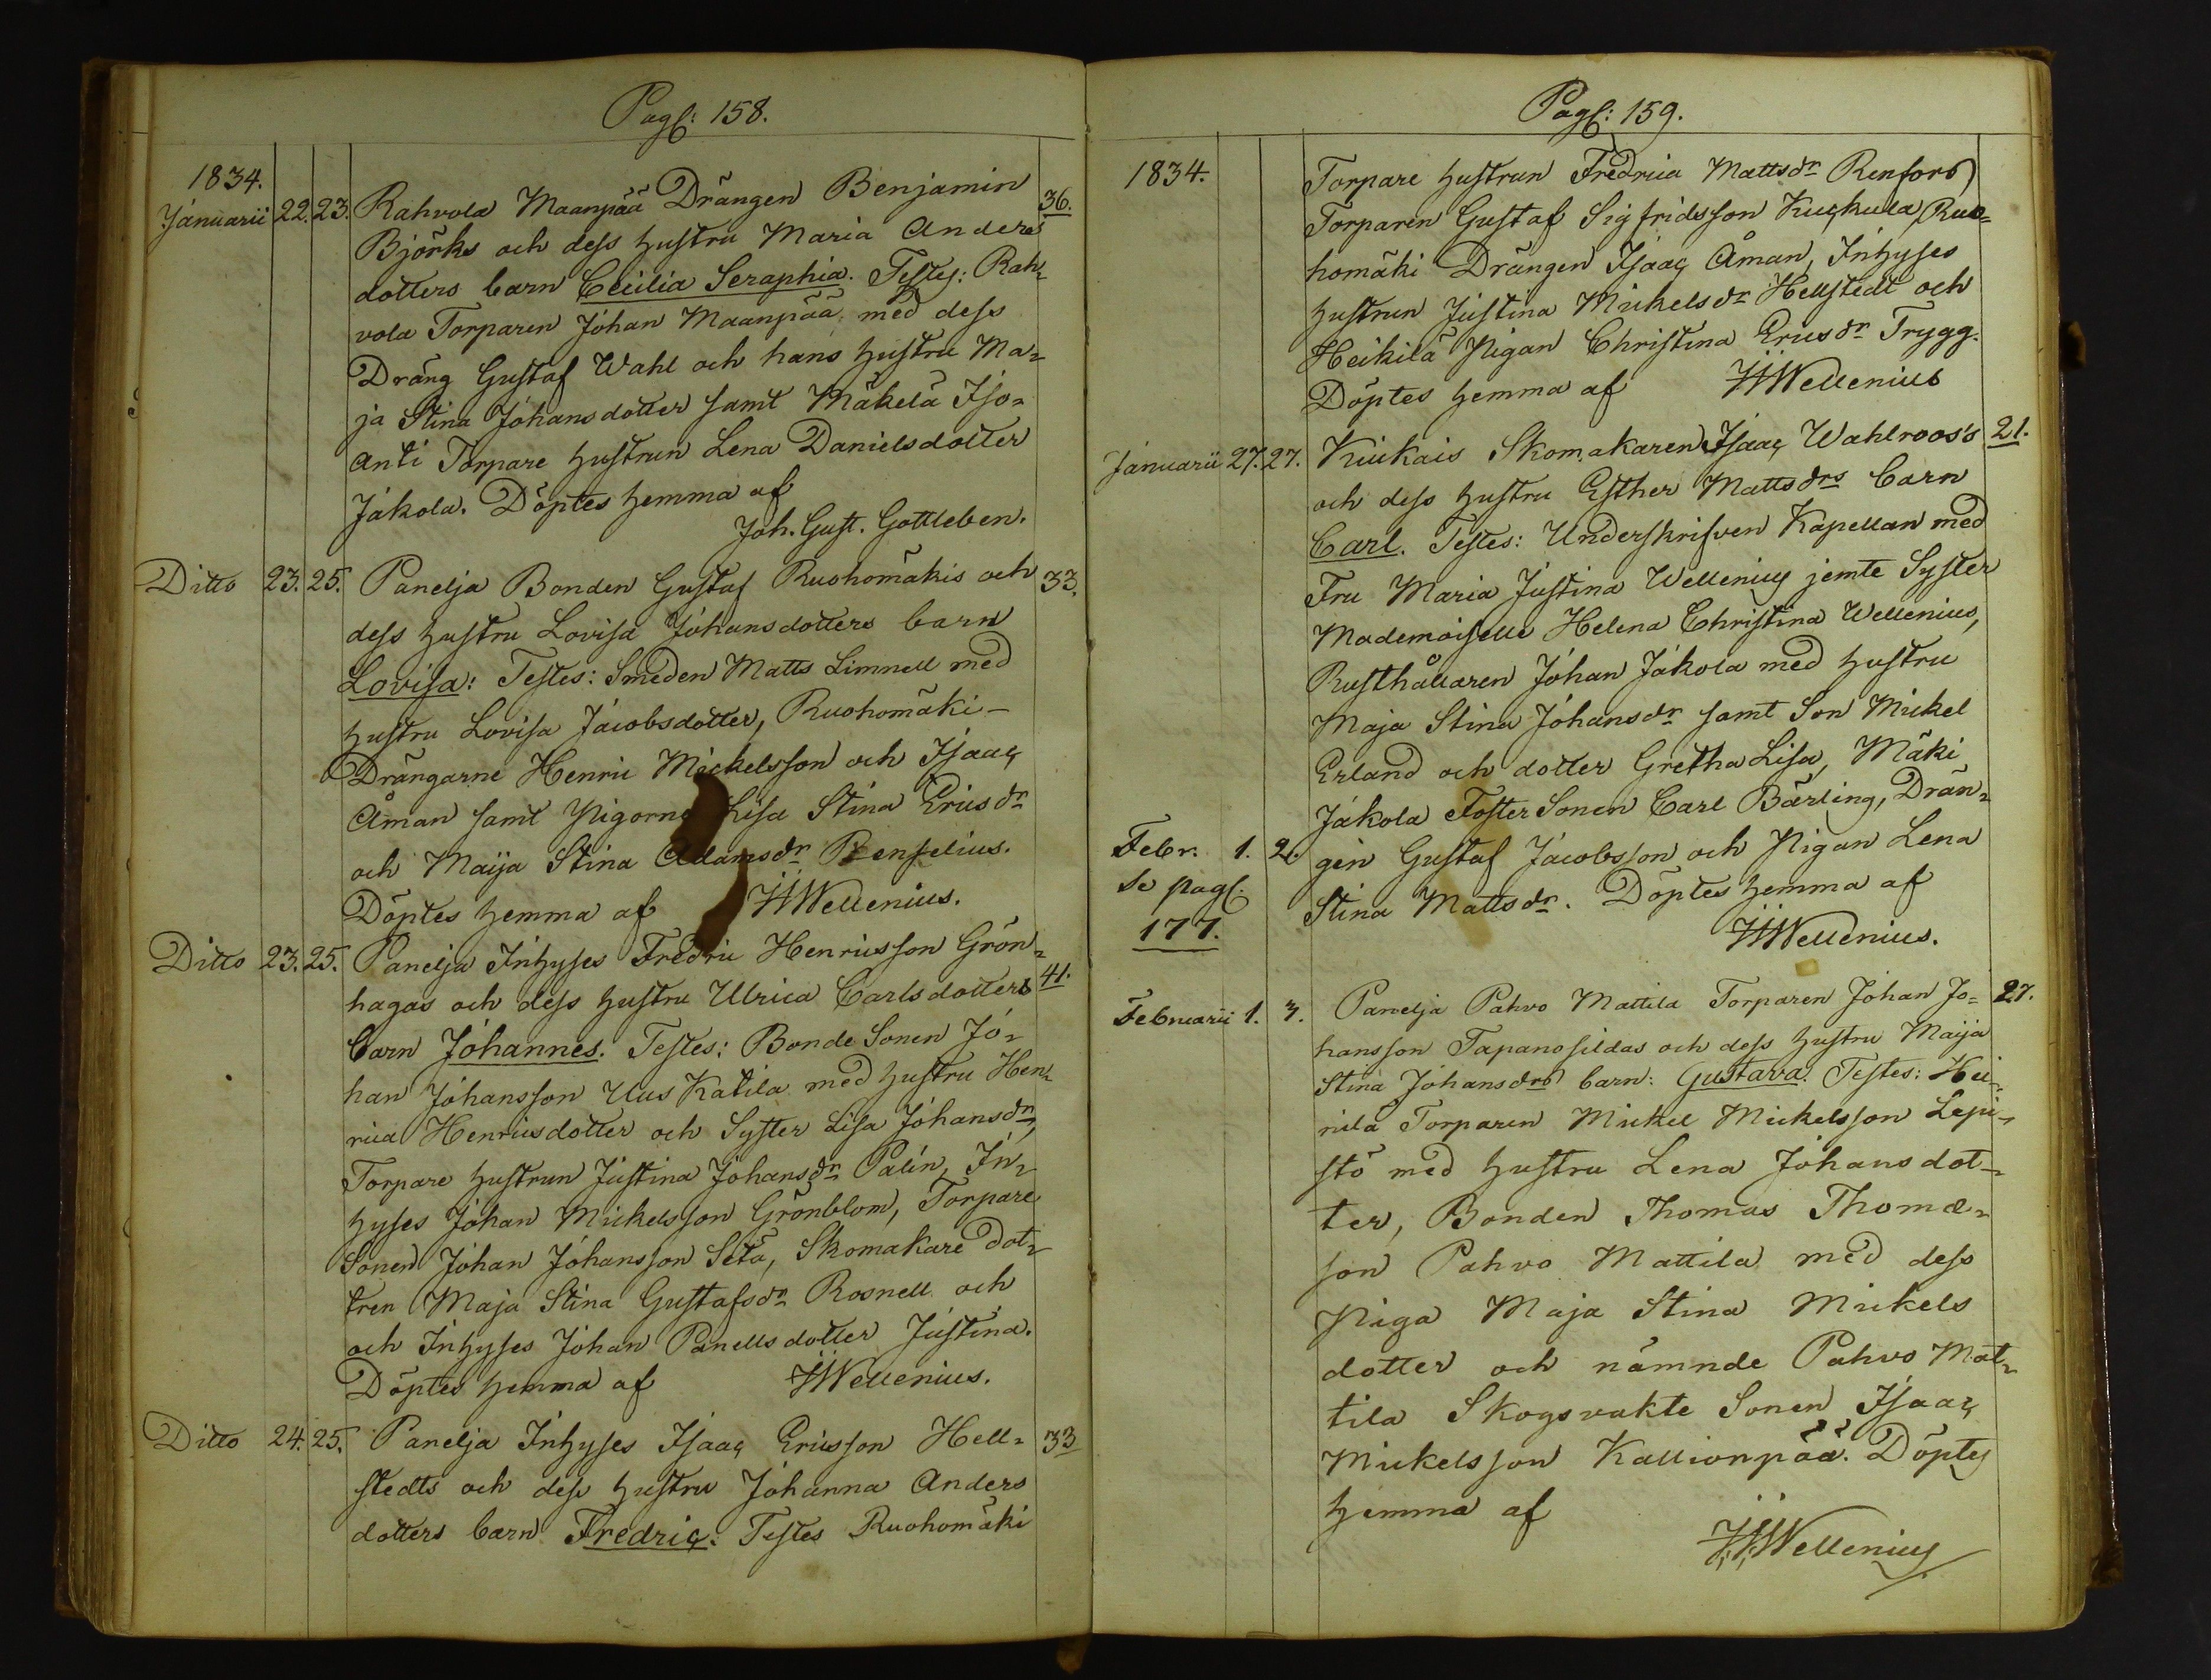 Pag: 158.
1834.
Januarii 22. 23. Rahvola Maanpää Drängen Benjamin 36.
Björks och dess hustru Maria Anders
dotters barn Cecilia Seraphia. Testes: Rah-
vola Torparen Johan Maanpää med dess
Dräng Gustaf Wahl och hans hustru Ma-
ja Stina Johansdotter samt Mäkelä Iso-
Anti Torpare hustrun Lena Danielsdotter
Jakola. Döptes hemma af
Joh. Gust. Gottleben.
Ditto 23. 25. Panelja Bonden Gustaf Ruohomäkis och 33.
dess hustru Lovisa Johansdotters barn
Lovisa: Testes: Smeden Matts Limnell med
hustru Lovisa Jacobsdotter, Ruohomäki-
Drängarne Henric Mickelsson och Isaac
Åman samt Pigorne Lisa Stina Ericsdr
och Maija Stina Adamsdr Renselius.
Döptes hemma af Wellenius.
Ditto 23. 25. Panelja Inhyses Fredric Henricsson Grön-
hagas och dess hustru Ulrica Carlsdotters 41.
barn Johannes. Testes: Bonde Sonen Jo-
han Johansson Uus Katila med hustru Hen-
rica Henricsdotter och Syster Lisa Johansdr,
Torpare hustrun Justina Johansdr Palin, In-
hyses Johan Mickelsson Grönblom, Torpare
Sonen Johan Johansson Setä, Skomakare dot-
tren Maja Stina Gustafsdr Rosnell och
och Inhyses Johan Panells dotter Justina.
Döptes hemma af Wellenius.
Ditto 24. 25. Panelja Inhyses Isaac Ericsson Hell- 33
stedts och dess hustru Johanna Anders
dotters barn Fredric: Testes Ruohomäki
Pag: 159.
1834.
Torpare hustrun Fredrica Mattsdr Renfors
Torparen Gustaf Sigfridsson Kuckula, Ruo-
homäki Drängen Isaac Åman, Inhyses
hustrun Justina Mickelsdr Hellstedt och
Heikilä Pigan Christina Ericsdr Trygg.
Döptes hemma af Wellenius
Januarii 27. 27. Kiukais Skomakaren Isaac Wahlroos's 21.
och dess hustru Esther Mattsdrs barn
Carl. Testes: Underskrifven Kapellan med
Fru Maria Justina Wellenius jemte Syster
Mademoiselle Helena Christina Wellenius,
Rusthållaren Johan Jakola med hustru
Maja Stina Johansdr samt Son Mickel
Erland och dotter Gretha Lisa, Mäki
Jakola Foster Sonen Carl Bärling, Drän-
Febr. 1. 2. gen Gustaf Jacobsson och Pigan Lena
Se pag:
Stina Mattsdr. Döptes hemma af
177.
Wellenius.
Februarii 1. 3. Panelja Pahvo Mattila Torparen Johan Jo- 27.
hansson Tapanosildas och dess hustru Maija
Stina Johansdrs barn: Gustava. Testes: Hei-
nilä Torparen Mickel Mickelsson Lepi-
stö med hustru Lena Johansdot-
ter, Bonden Thomas Thomæ-
son Pahvo Mattila med dess
Piga Maja Stina Mickels
dotter och nämnde Pahvo Mat-
tila Skogsvakte Sonen Isaac
Mickelsson Kallionpää. Döptes
hemma af
Wellenius